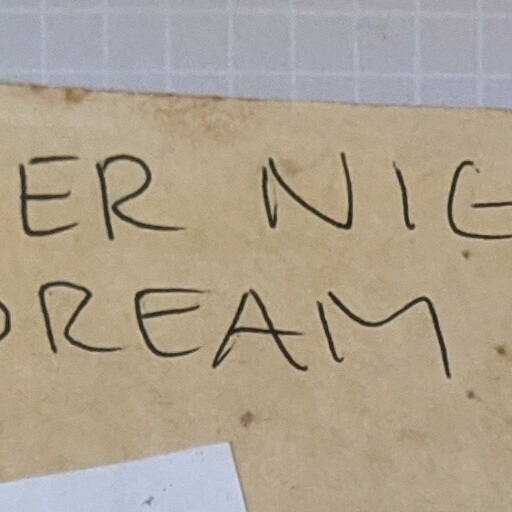 ER NIG
DREAM